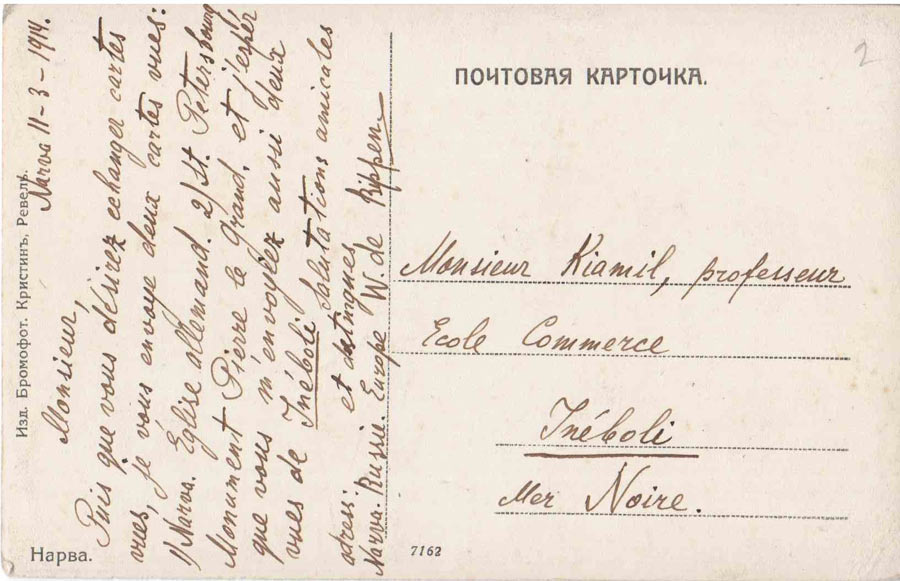 Narva 11-3-1914.
Monsieur,
Puis que vous désirez echanger cartes
vues, je vous envoye deux cartes vues:
1/ Narva. Eglise allemand. 2/ St. Petersbourg
Monument Pierre le Grand, et j'espér
que vous m'envoyiez aussi deux
vues de Inéboli Salutations amicales
et distingués
W. de Rippen.
adress:
Narva. Russie. Europe
ПОЧТОВАЯ КАРТОЧКА.
2
Monsieur Kiamil, professeur
Ecole Commerce
Inéboli
Mer Noire.
Изд. Бромофот. Кристинъ, Ревель.
Нарва.
7162